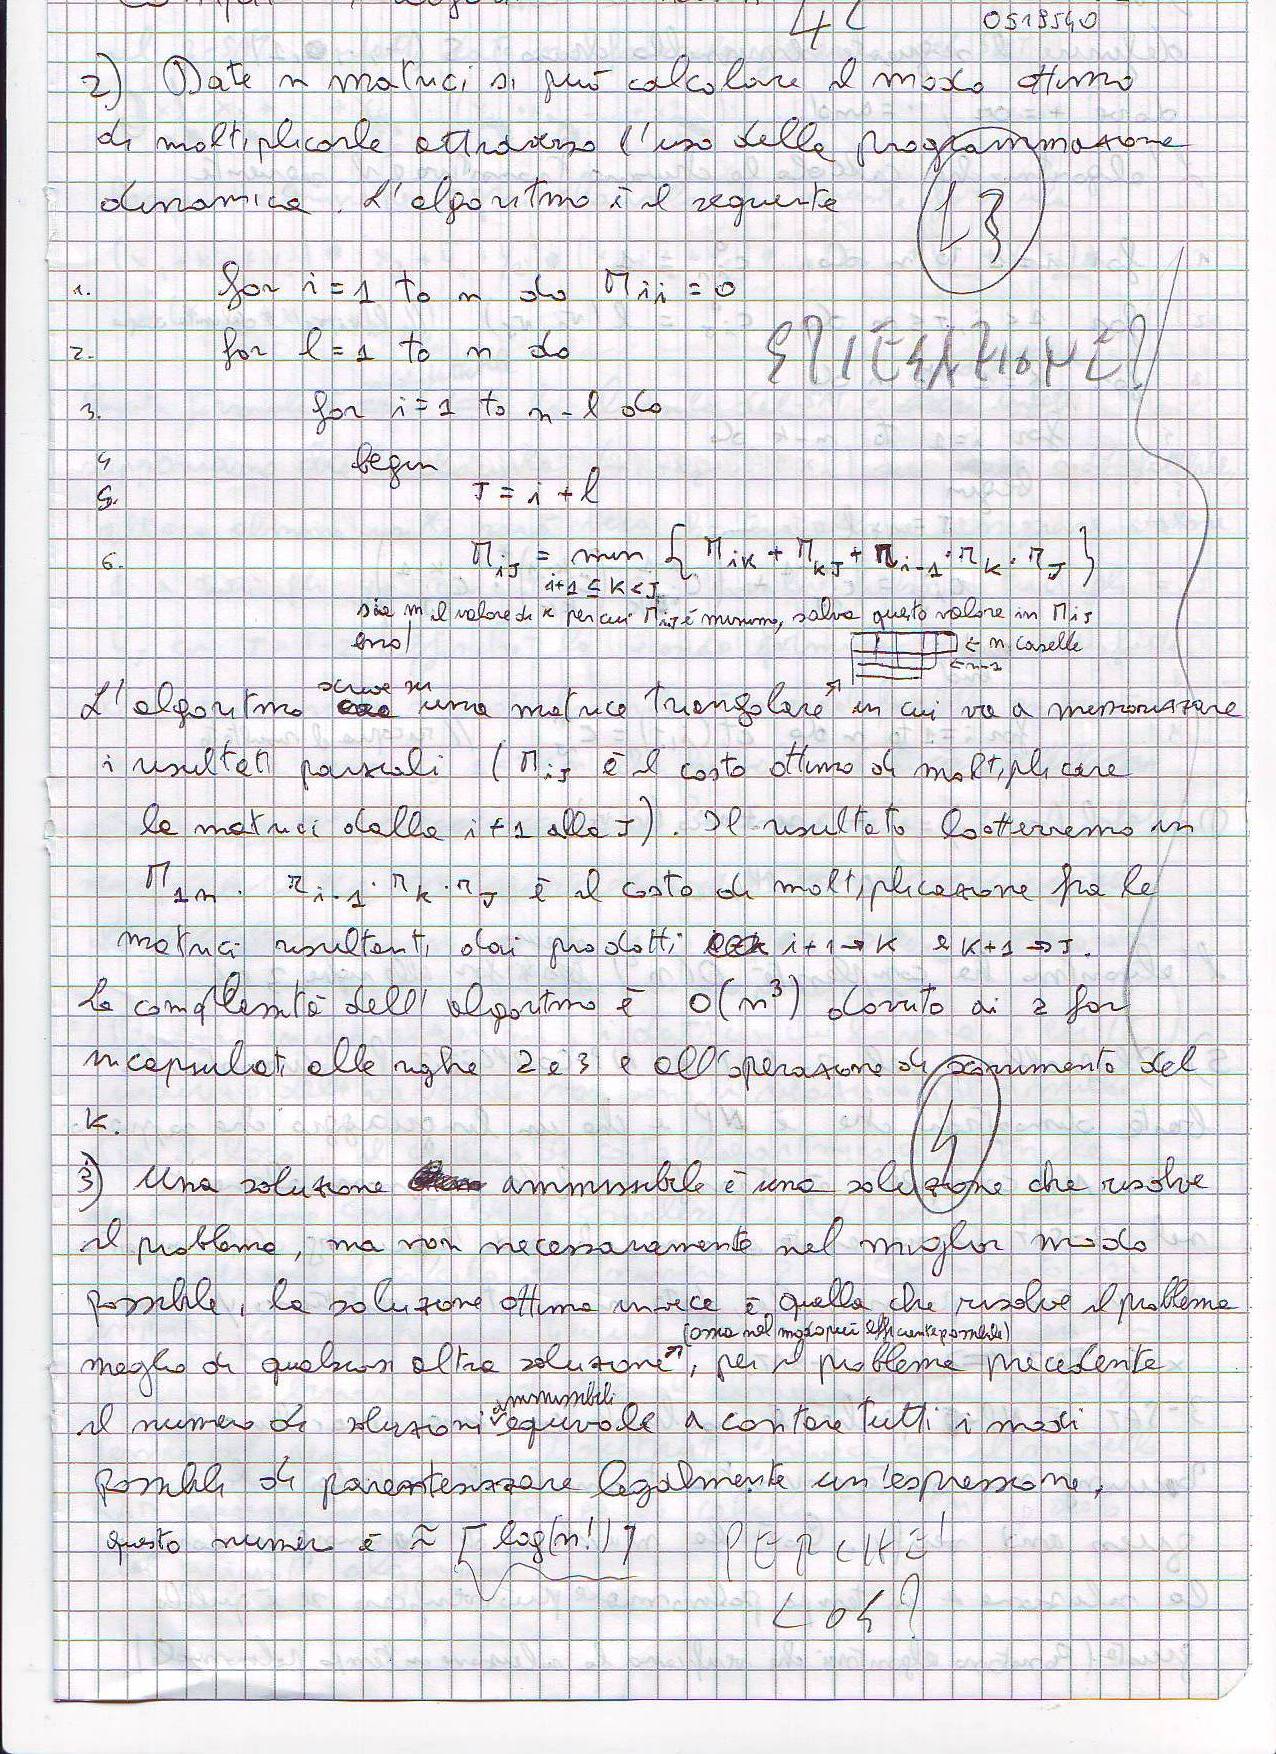 0519540
2) Date n matrici si può calcolare il modo ottimo
di moltiplicarle attraverso l'uso della programmazione
dinamica. L'algoritmo è il seguente
13
1. for i=1 to n do Mii = 0
2. for l=1 to n do
SPIEGAZIONE?
3. for i=1 to n-l do
4 begin
5. J = i + l
6. MiJ = min { MiK + MKJ + ri-1 · rK · rJ }
i+1 ≤ K < J
sia m il valore di K per cui MiJ è minimo, salva questo valore in MiJ
end
← n caselle
← n-1
L'algoritmo scrive su una matrice triangolare in cui va a memorizzare
i risultati parziali (MiJ è il costo ottimo di moltiplicare
le matrici dalla i+1 alla J). Il risultato lo otterremo in
M1n. ri-1 · rK · rJ è il costo di moltiplicazione fra le
matrici risultanti dai prodotti i+1 → K e K+1 → J.
La complessità dell'algoritmo è O(n³) dovuto ai 2 for
incapsulati alle righe 2 e 3 e all'operazione di del
K.
3) Una soluzione ammissibile è una soluzione che risolve
il problema, ma non necessariamente nel miglior modo
possibile, la soluzione ottima invece è quella che risolve il problema
(ossia nel modo più efficiente possibile)
meglio di qualsiasi altra soluzione, per il problema precedente
il numero di soluzioni ammissibili equivale a contare tutti i modi
possibili di parentesizzare legalmente un'espressione,
questo numero è ≈ ⌈log(n!)⌉ PERCHE'
COSÌ?